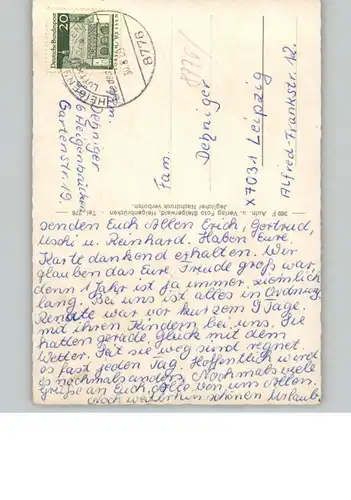 senden Euch Allen Erich, Gertrud,
Uschi u. Reinhard. Haben Eure
Karte dankend erhalten. Wir
glauben das Eure Freude groß war,
denn 1 Jahr ist ja immer ziemlich
lang. Bei uns ist alles in Ordnung
Renate war vor kurzem 9 Tage.
mit ihren Kindern bei uns. Sie
hatten gerade Glück mit dem
Wetter. Seit sie weg sind regnet
es fast jeden Tag. Hoffentlich wird
es nochmals anders. Nochmals viele
Grüße an Euch alle von uns Allen.
Noch weiterhin schönen Urlaub.
Fam.
Dehniger
X7031 Leipzig
Alfred-Frankstr. 12
Dehniger
Heigenbrücken
Gartenstr. 19
369 F Aufn. u. Verlag Foto Steigerwald, Heigenbrücken Tel. 276
Jeglicher Nachdruck verboten.
Deutsche Bundespost
20
8776
HEIGENBRÜCKEN